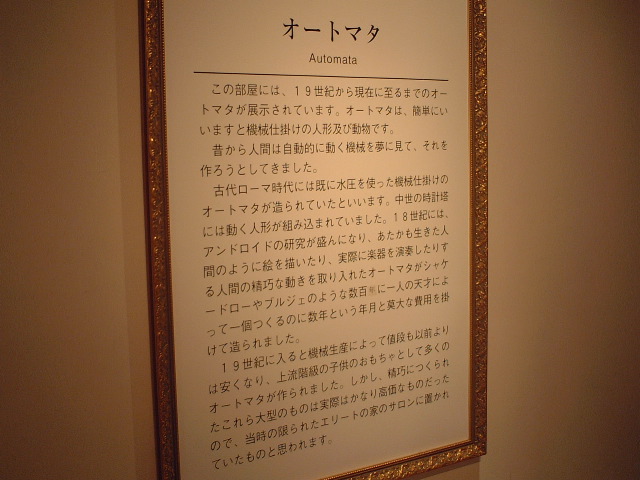 オートマタ
Automata
この部屋には、１９世紀から現在に至るまでのオー
トマタが展示されています。オートマタは、簡単にい
いますと機械仕掛けの人形及び動物です。
昔から人間は自動的に動く機械を夢に見て、それを
作ろうとしてきました。
古代ローマ時代には既に水圧を使った機械仕掛けの
オートマタが造られていたといいます。中世の時計塔
には動く人形が組み込まれていました。１８世紀には、
アンドロイドの研究が盛んになり、あたかも生きた人
間のように絵を描いたり、実際に楽器を演奏したりす
る人間の精巧な動きを取り入れたオートマタがジャケ
ードローやブルジェのような数百年に一人の天才によ
って一個つくるのに数年という年月と莫大な費用を掛
けて造られました。
１９世紀に入ると機械生産によって値段も以前より
は安くなり、上流階級の子供のおもちゃとして多くの
オートマタが作られました。しかし、精巧につくられ
たこれら大型のものは実際はかなり高価なものだった
ので、当時の限られたエリートの家のサロンに置かれ
ていたものと思われます。